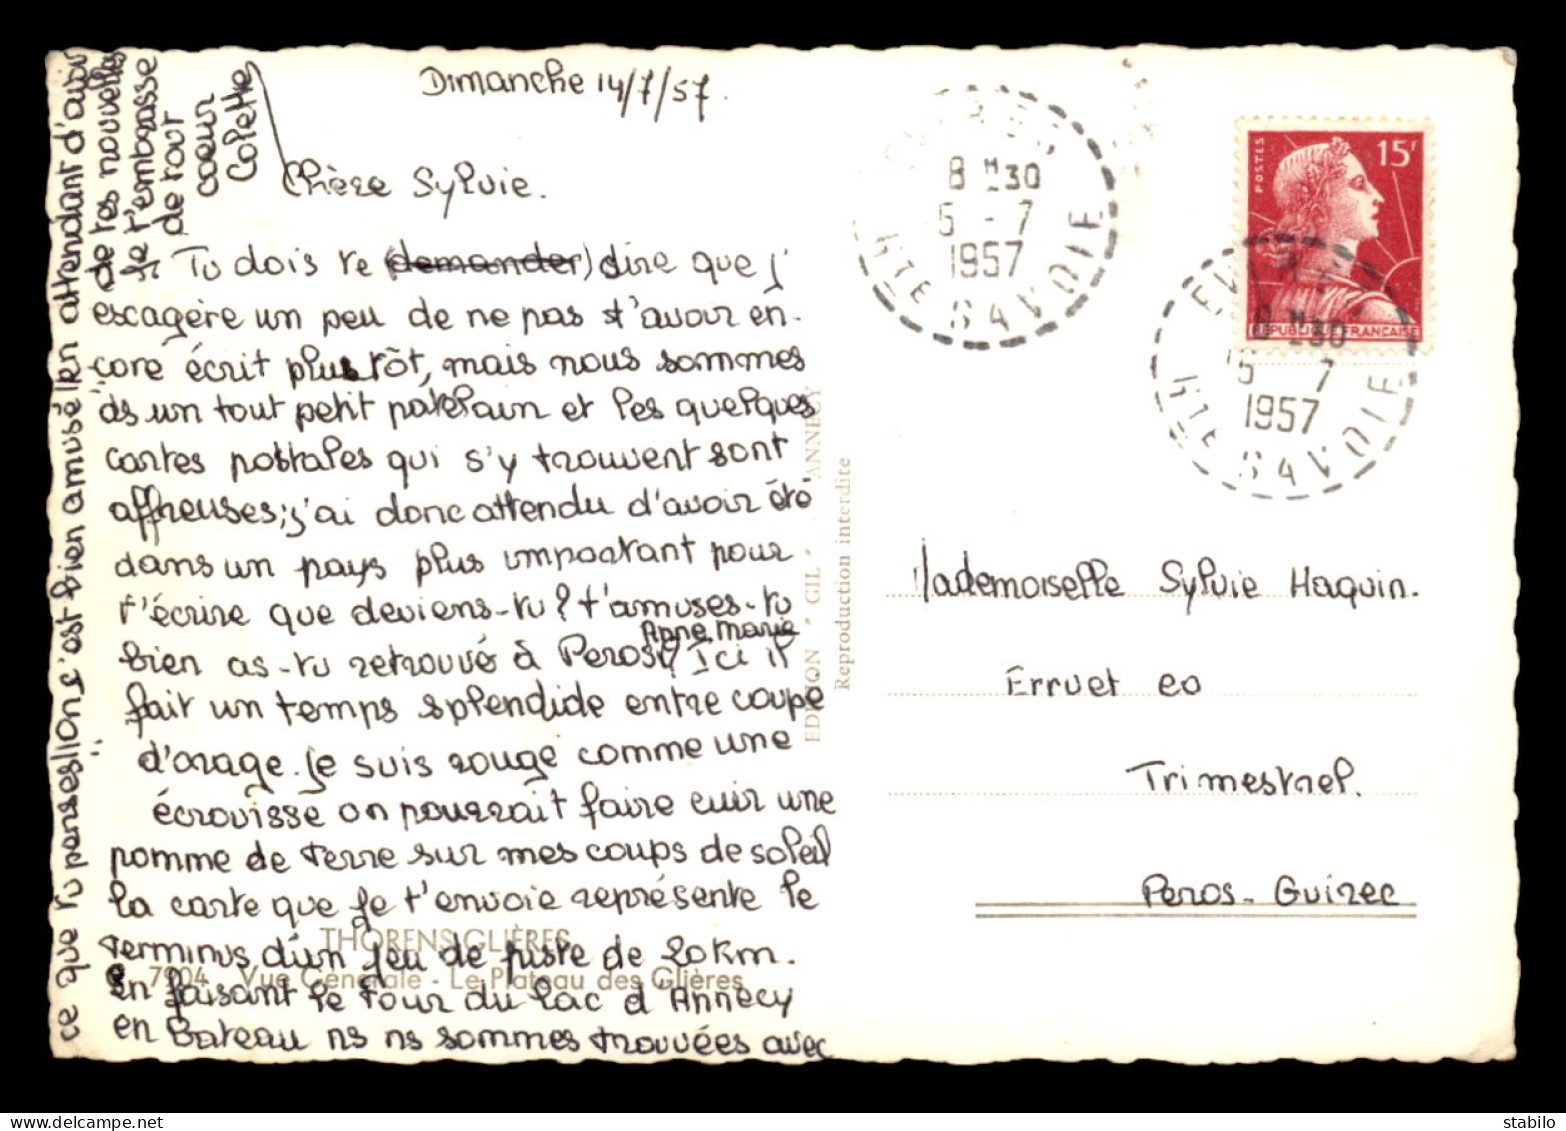 Dimanche 14/7/57.
Chère Sylvie.
Tu dois te (demander) dire que j'
escagère un peu de ne pas t'avoir en-
core écrit plus tôt, mais nous sommes
ds un tout petit patelain et les quelques
cartes postales qui s'y trouvent sont
affreuses; j'ai donc attendu d'avoir été
dans un pays plus important pour
t'écrire que deviens-tu? t'amuses-tu
bien as-tu retrouvé à Peros Anne Marie? Ici il
fait un temps splendide entre coupé
d'orage. Je suis rouge comme une
écrovisse on pourrait faire cuir une
pomme de terre sur mes coups de soleil
la carte que je t'envoie représente le
terminus d'un jeu de piste de 20 Km.
en faisant le tour du lac d'Annecy
en Bateau ns ns sommes trouvées avec
ce que tu penses! lions c'est bien amusé! en attendant d'avoir
de tes nouvelles
je t'embrasse
de tout
coeur
Colette
THORENS-GLIÈRES
7904 Vue Générale - Le Plateau des Glières
EDITION - GIL - ANNECY
Reproduction interdite
8 H 30
5 - 7
1957
HTE SAVOIE
POSTES
15F
REPUBLIQUE FRANÇAISE
8 H 30
15 - 7
1957
HTE SAVOIE
Mademoiselle Sylvie Haquin.
Erruet eo
Trimestrel.
Peros-Guirec
delcampe.net
stabilo